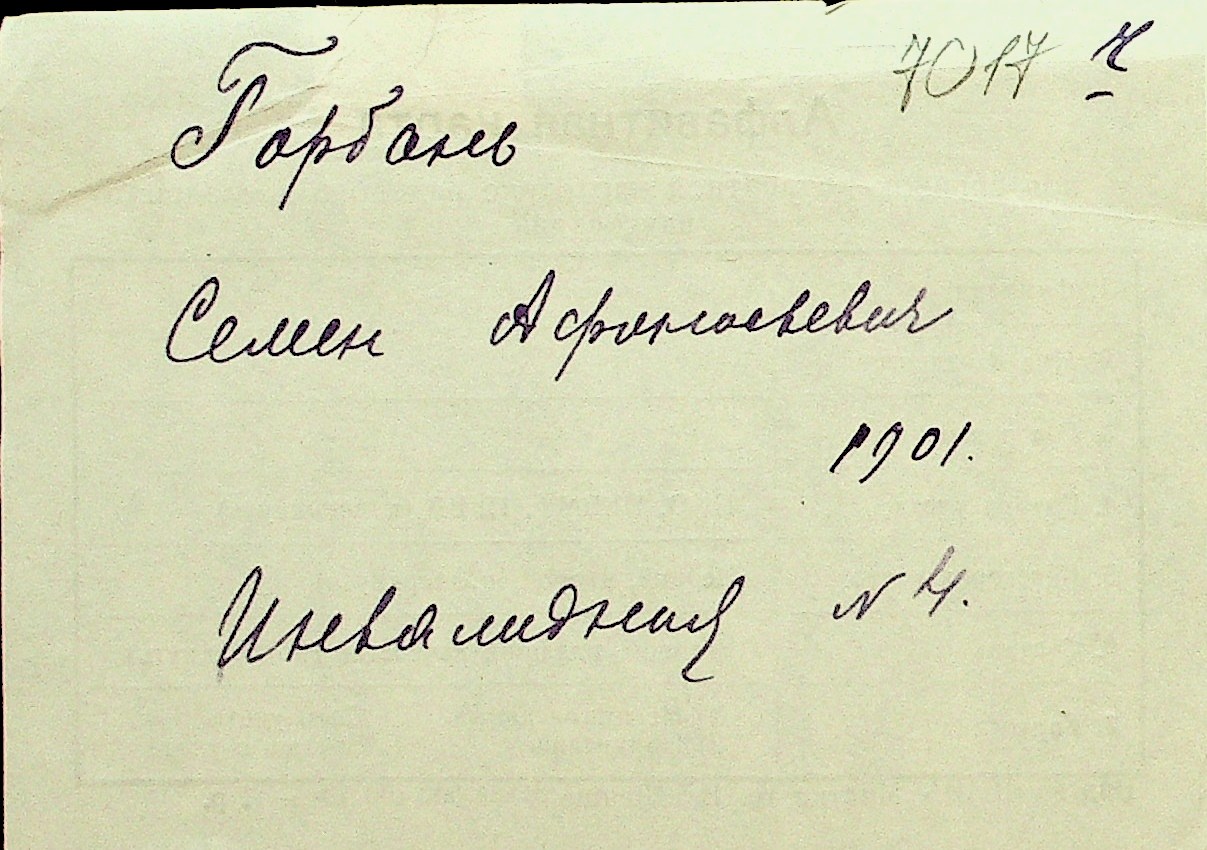 7017 ч
Горбань
Семен Афанасьевич
1901.
Инвалидная N 4.